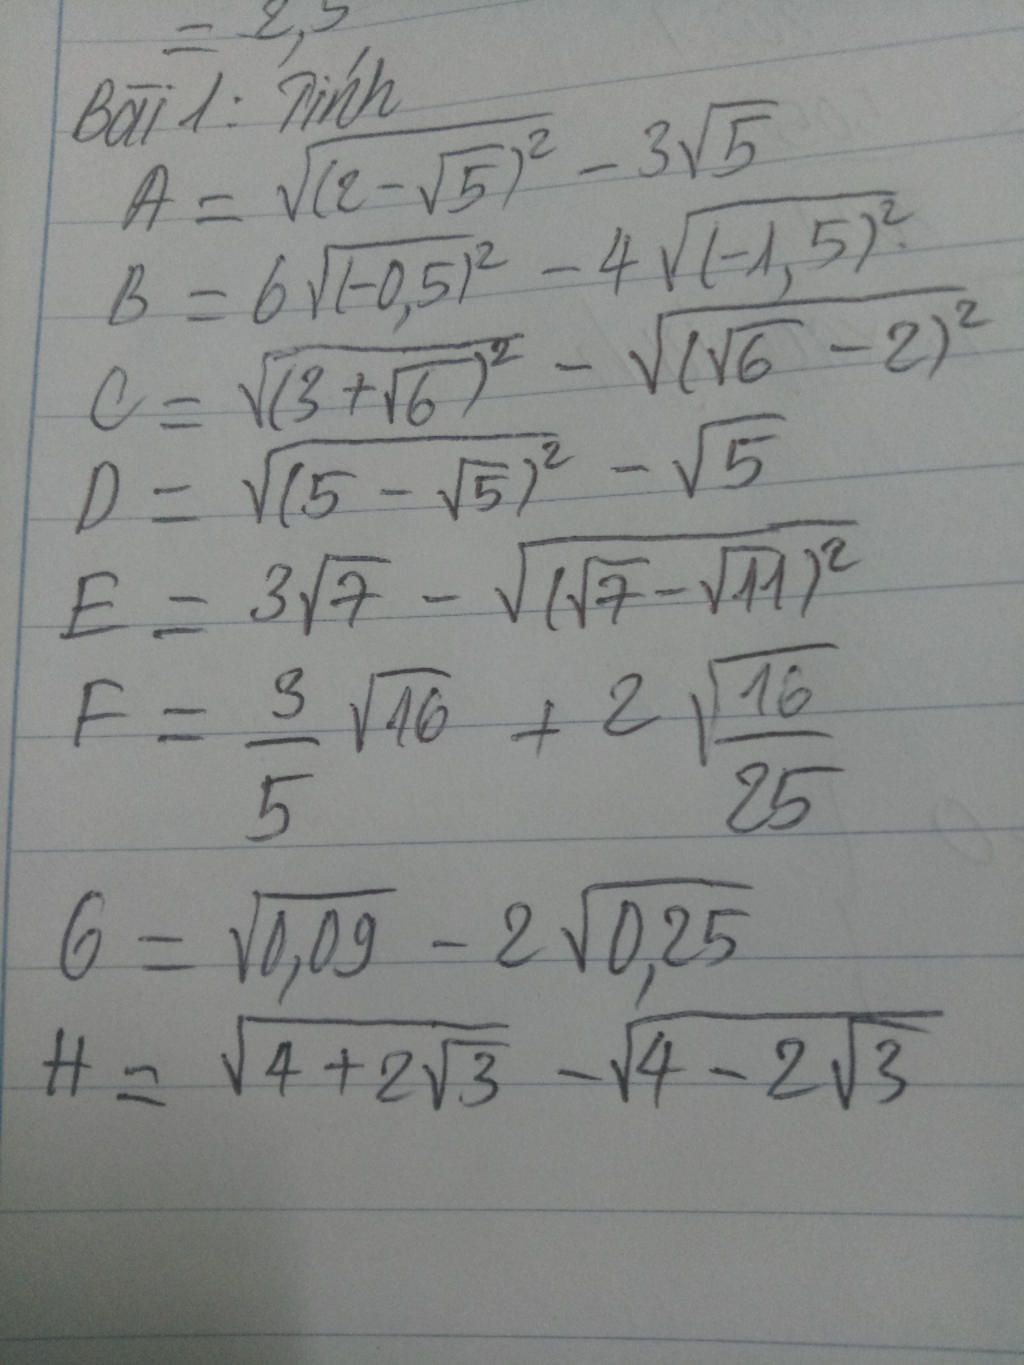 = 2,5
Bài 1: Tính
A = √(2-√5)² - 3√5
B = 6√(-0,5)² - 4√(-1,5)²
C = √(3+√6)² - √(√6 - 2)²
D = √(5 - √5)² - √5
E = 3√7 - √(√7-√11)²
F = 3/5 √16 + 2√16/25
G = √0,09 - 2√0,25
H = √4+2√3 - √4-2√3